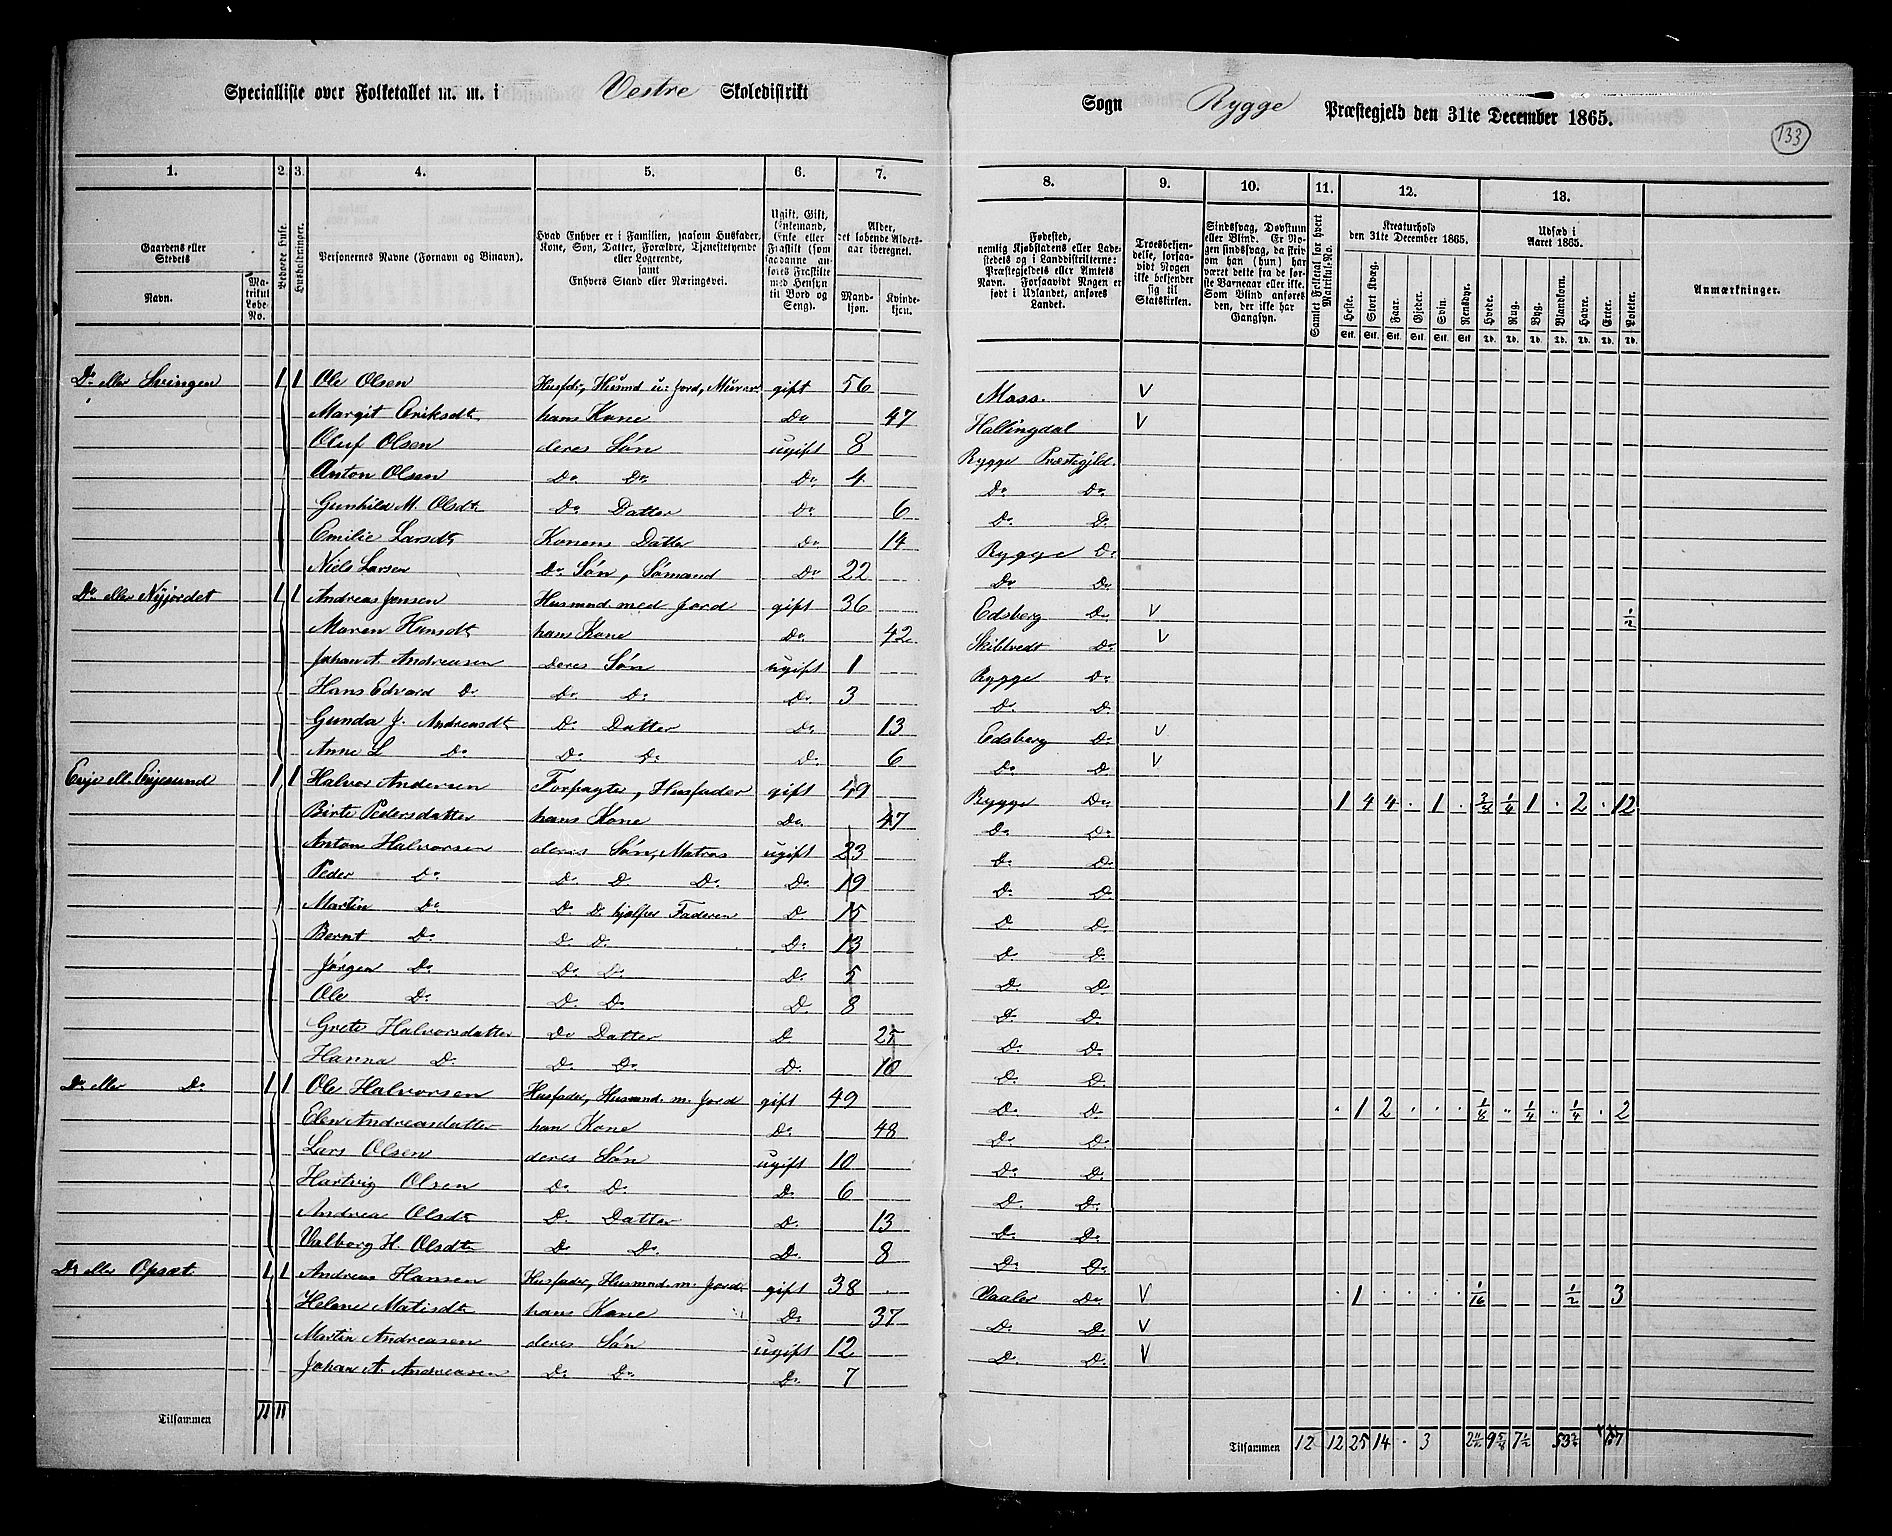 Specialliste over Folketallet m. m. i Vestre Skoledistrikt
Sogn Rygge Præstegjeld den 31te December 1865.
133
1. 2. 3. 4. 5. 6. 7.
8. 9. 10. 11. 12. 13.
Gaardens eller Stedets
Navn.
Matrikul Løbe-No.
Beboede Huse.
Husholdninger.
Personernes Navne (Fornavn og Binavn).
Hvad Enhver er i Familien, saasom Husfader, Kone, Søn, Datter, Forældre, Tjenestetyende eller Logerende, samt Enhvers Stand eller Næringsvei.
Ugift, Gift, Enkemand, Enke eller Fraskilt (saadanne anføres Fraskilte med Hensyn til Bord og Seng).
Alder, det løbende Aldersaar iberegnet.
Mandkjøn.
Kvindekjøn.
Fødested, nemlig Kjøbstadens eller Ladestedets og i Landdistrikterne: Præstegjeldets eller Amtets Navn. Forsaavidt Nogen er født i Udlandet, anføres Landet.
Troesbekjendelse, forsaavidt Nogen ikke bekjender sig til Statskirken.
Sindssvag, Døvstum eller Blind. Er Nogen sindssvag, da hvorvidt han (hun) har været dette fra de første Barneaar eller ikke. Som Blind anføres den, der ikke har Gangsyn.
Samlet Folketal for hvert Matrikul-No.
Kreaturhold den 31te December 1865.
Heste. Stort Kvæg. Faar. Gjeder. Svin. Rensdyr.
Udsæd i Aaret 1865.
Hvede. Rug. Byg. Blandkorn. Havre. Erter. Poteter.
Anmærkninger.
Do eller Svingen 1 1 Ole Olsen Husfdr, Husmd u. Jord, Murer gift 56 Moss. V
Margit Eriksdt hans Kone Do 47 Hallingdal V
Oluf Olsen deres Søn ugift 8 Rygge Præstegjeld.
Anton Olsen Do Do Do 4 Do Do
Gunhild M. Olsdt Do Datter Do 6 Do Do
Emilie Larsdt Konens Datter Do 14 Rygge Do
Niels Larsen Do Søn, Sømand Do 22 Do Do
Do eller Nyjordet 1 1 Andreas Jensen Husmnd. med Jord gift 36 Edsberg Do V 1/2
Maren Hansdt hans Kone Do 42 Skibtvedt Do V
Johan A. Andreasen deres Søn ugift 1 Rygge Do
Hans Edvard Do Do Do Do 3 Do Do
Gunda J. Andreasdt Do Datter Do 13 Edsberg Do V
Anne L Do Do Do Do 6 Do Do V
Evje ell. Evjesund 1 1 Halvor Andersen Forpagter, Husfader gift 49 Rygge Do 1 4 4 . 1 . 1/4 1 . 2 . 12
Birte Pedersdatter hans Kone Do 47 Do Do
Anton Halvorsen deres Søn, Matros ugift 23 Do Do
Peder Do Do Do Do Do 19 Do Do
Martin Do Do Do hjælper Faderen Do 15 Do Do
Bernt Do Do Do Do 13 Do Do
Jørgen Do Do Do Do 5 Do Do
Ole Do Do Do Do 8 Do Do
Grete Halvorsdatter Do Datter Do 25 Do Do
Hanna Do Do Do Do 10 Do Do
Do eller Do 1 1 Ole Halvorsen Husfader, Husmnd. m. Jord gift 49 Do Do . 1 2 . . . 1/8 " 1/4 .. 1/4 . 2
Elen Andreasdatter han Kone Do 48 Do Do
Lars Olsen deres Søn ugift 10 Do Do
Hartvig Olsen Do Do Do 6 Do Do
Andrea Olsdt Do Datter Do 13 Do Do
Valborg H. Olsdt Do Do Do 8 Do Do
Do eller Opsæt 1 1 Andreas Hansen Husfader, Husmnd. m. Jord gift 38 Vaaler Do V . 1 . . . . 1/16 1/2 3
Helene Matisdt hans Kone Do 37 Do Do V
Martin Andreasen deres Søn ugift 12 Do Do V
Johan A. Andreasen Do Do Do 7
Tilsammen 11 11
Tilsammen 12 12 25 14 . 3 7 1/2